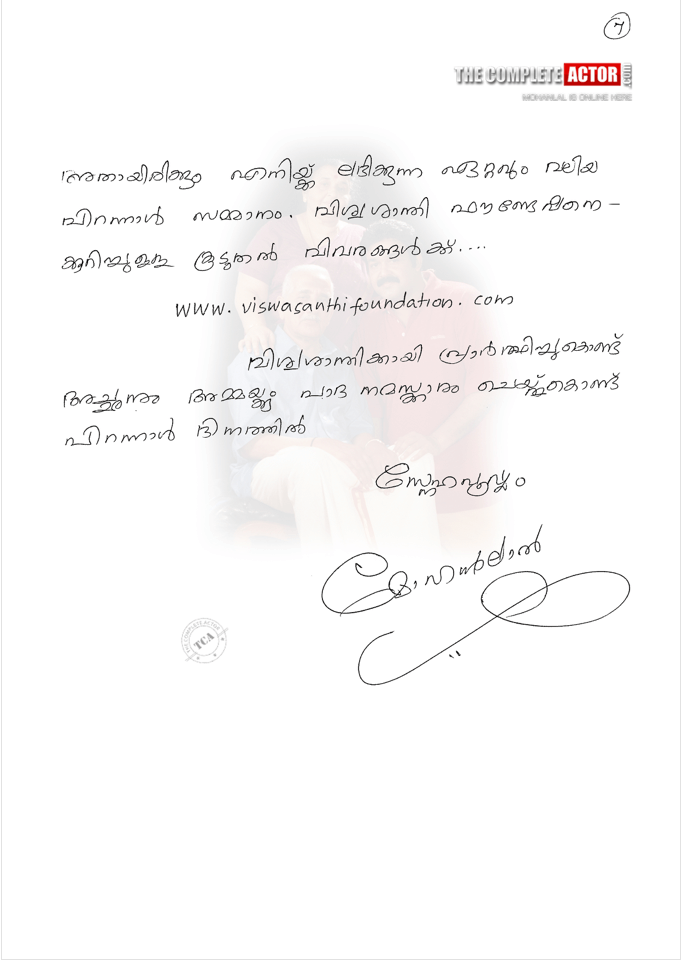 7
THE COMPLETE ACTOR .COM
MOHANLAL IS ONLINE HERE
അതായിരിക്കും എനിയ്ക്ക് ലഭിക്കുന്ന ഏറ്റവും വലിയ
പിറന്നാൾ സമ്മാനം. വിശ്വശാന്തി ഫൗണ്ടേഷനെ-
ക്കുറിച്ചുള്ള കൂടുതൽ വിവരങ്ങൾക്ക്....
www.viswasanthifoundation.com
വിശ്വശാന്തിക്കായി പ്രാർത്ഥിച്ചുകൊണ്ട്
അച്ഛനും അമ്മയ്ക്കും പാദ നമസ്ക്കാരം ചെയ്തുകൊണ്ട്
പിറന്നാൾ ദിനത്തിൽ
സ്നേഹപൂർവ്വം
മോഹൻലാൽ
THE COMPLETE ACTOR
TCA